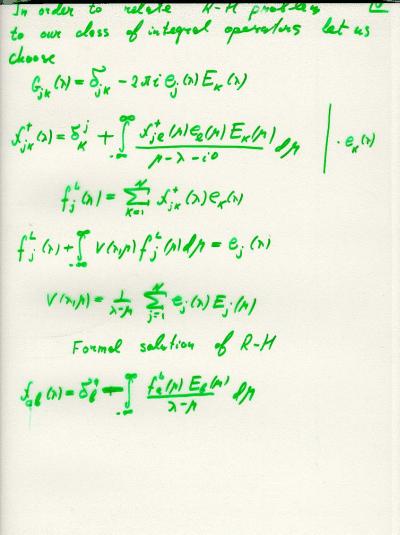 In order to relate R-H problem
to our class of integral operators let us
choose
G_{jk}(λ) = δ_{jk} - 2πi e_j(λ) E_k(λ)
χ^+_{jk}(λ) = δ^j_k + ∫_{-∞}^{∞} χ^+_{jl}(μ) e_l(μ) E_k(μ) / (μ - λ - i0) dμ | · e_k(λ)
f^L_j(λ) = Σ_{k=1}^{N} χ^+_{jk}(λ) e_k(λ)
f^L_j(λ) + ∫_{-∞}^{∞} V(λ,μ) f^L_j(μ) dμ = e_j(λ)
V(λ,μ) = 1/(λ-μ) Σ_{j=1}^{N} e_j(λ) E_j(μ)
Formal solution of R-H
χ_{ab}(λ) = δ^a_b - ∫_{-∞}^{∞} f^L_a(μ) E_b(μ) / (λ-μ) dμ